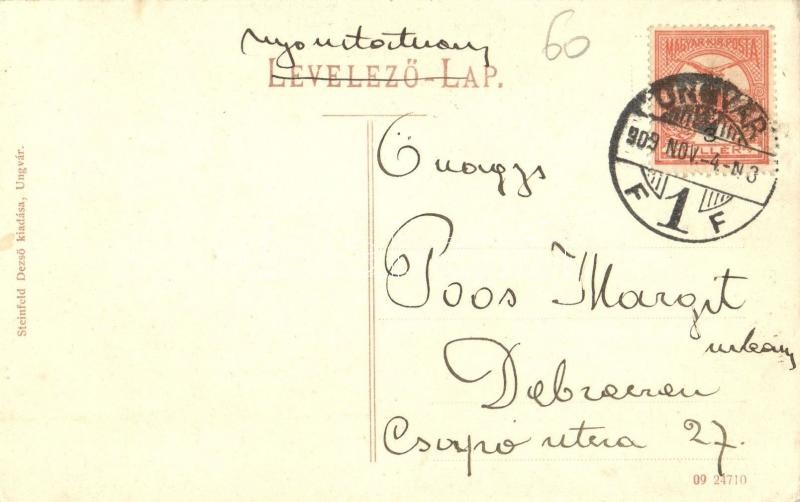 Nyomtatvány
60
LEVELEZŐ-LAP.
MAGYAR KIR. POSTA
UNGVÁR
909 NOV.-4.-N3
F 1 F
Steinfeld Dezső kiadása, Ungvár.
Önagys
Poos Margit
urleány
Debreczen
Csapó utcza 27.
09 24710